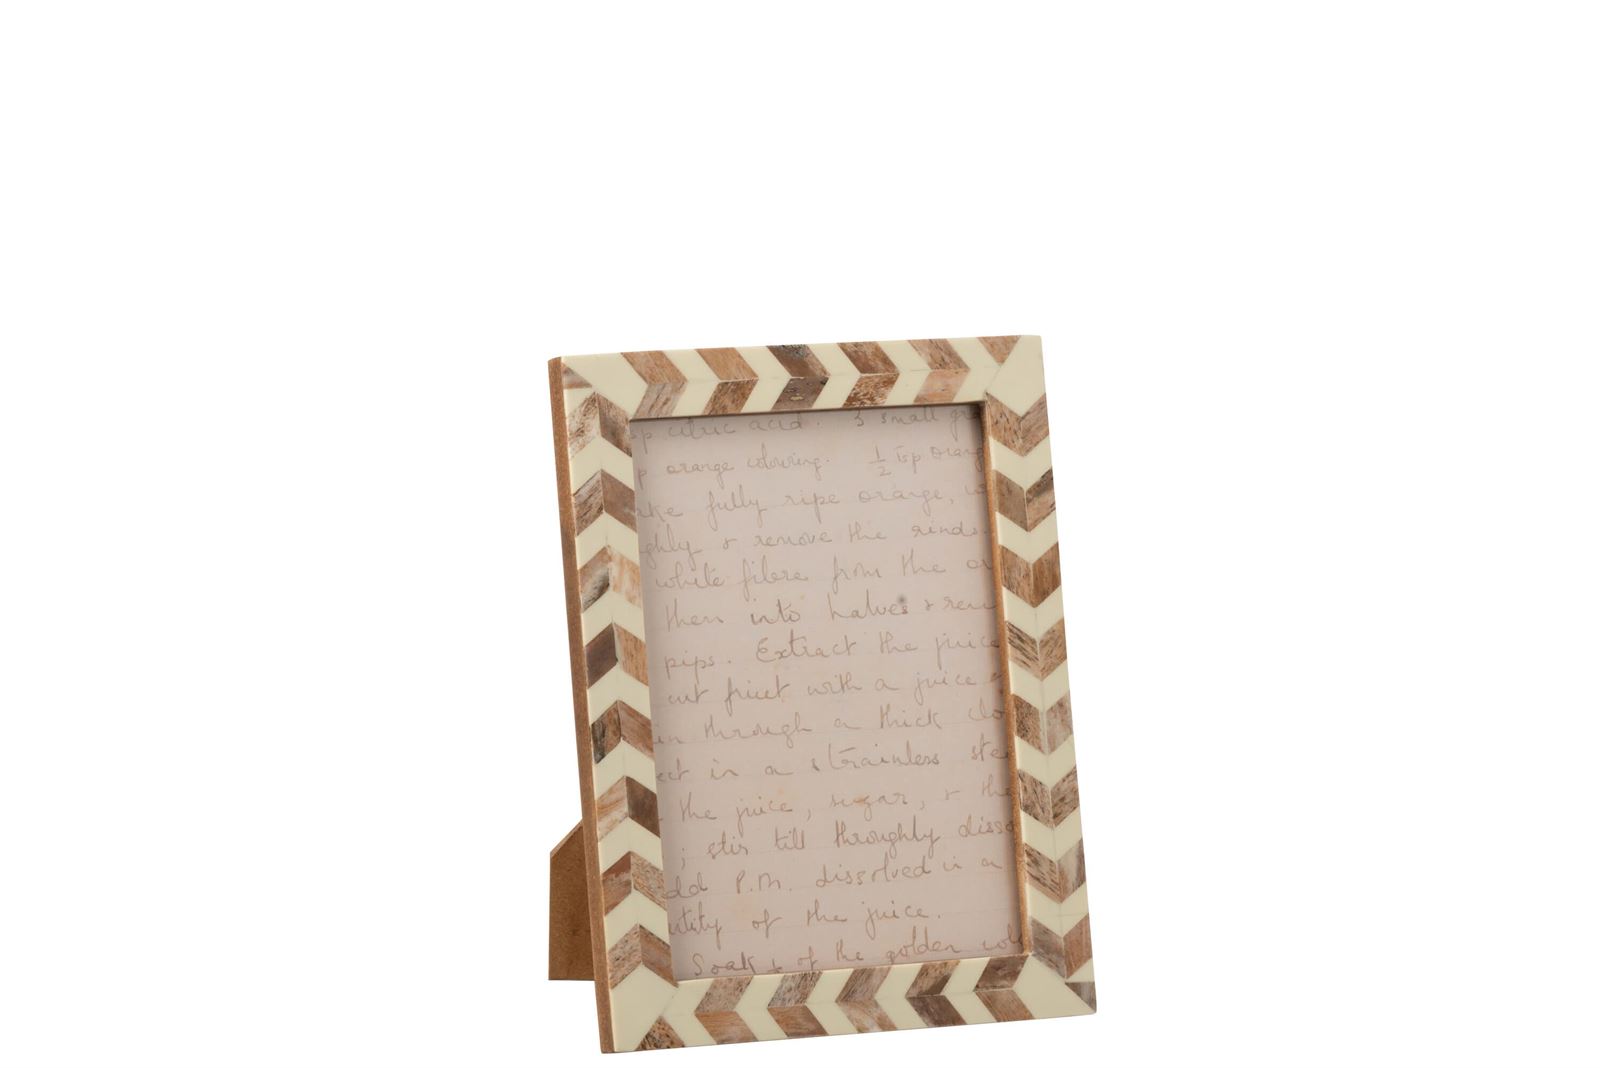 sp citric acid. 3 small gr
p orange colouring. 1/2 Tsp orang
ake fully ripe orange, w
ghly & remove the rinds.
white fibre from the or
them into halves & rem
pips. Extract the juice
cut fruit with a juice
in through a thick clo
ect in a strainless ste
the juice, sugar, & the
; stir till throughly disso
dd P.M. dissolved in a
ntity of the juice.
Soak of the golden col